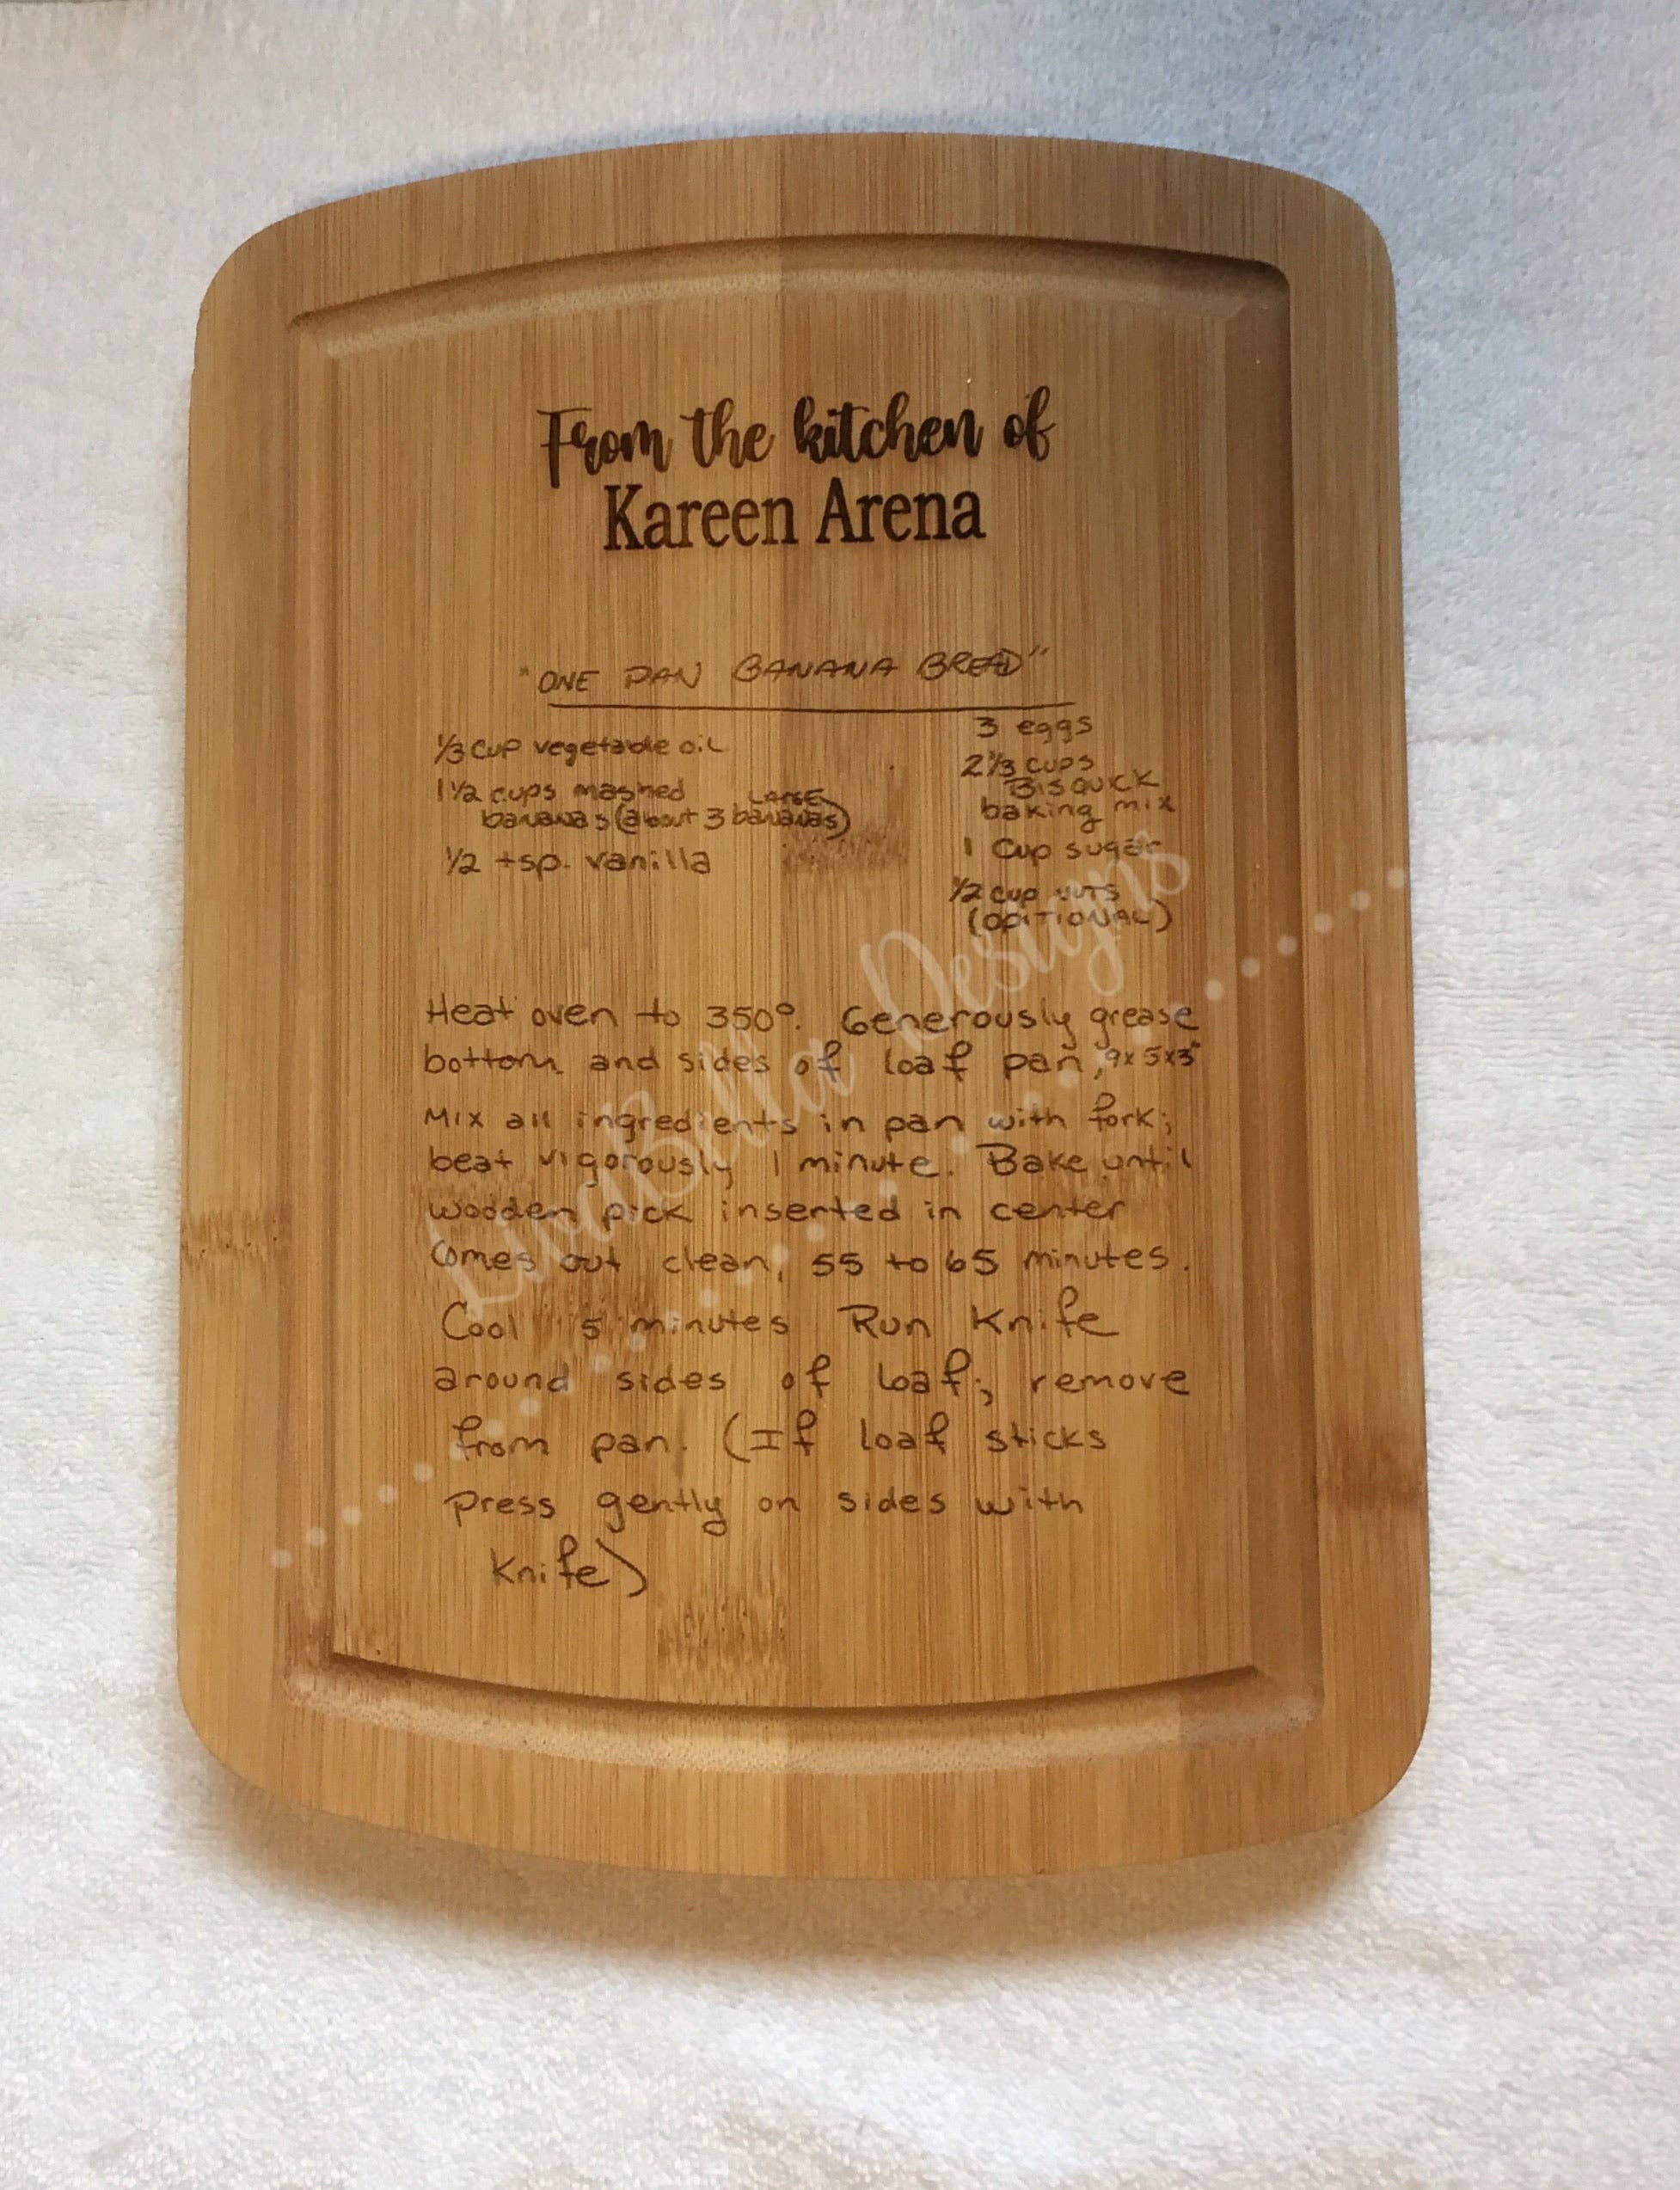 From the kitchen of
Kareen Arena
"ONE PAN BANANA BREAD"
1/3 cup vegetable oil
1 1/2 cups mashed
bananas (about 3 LARGE bananas)
1/2 tsp. vanilla
3 eggs
2 1/3 cups
BISQUICK
baking mix
1 cup sugar
1/2 cup NUTS
(OPITIONAL)
Heat oven to 350°. Generously grease
bottom and sides of loaf pan, 9x5x3"
Mix all ingredients in pan with fork;
beat vigorously 1 minute. Bake until
wooden pick inserted in center
Comes out clean, 55 to 65 minutes.
Cool 5 minutes Run Knife
around sides of loaf; remove
from pan. (If loaf sticks
Press gently on sides with
Knife)
Designs